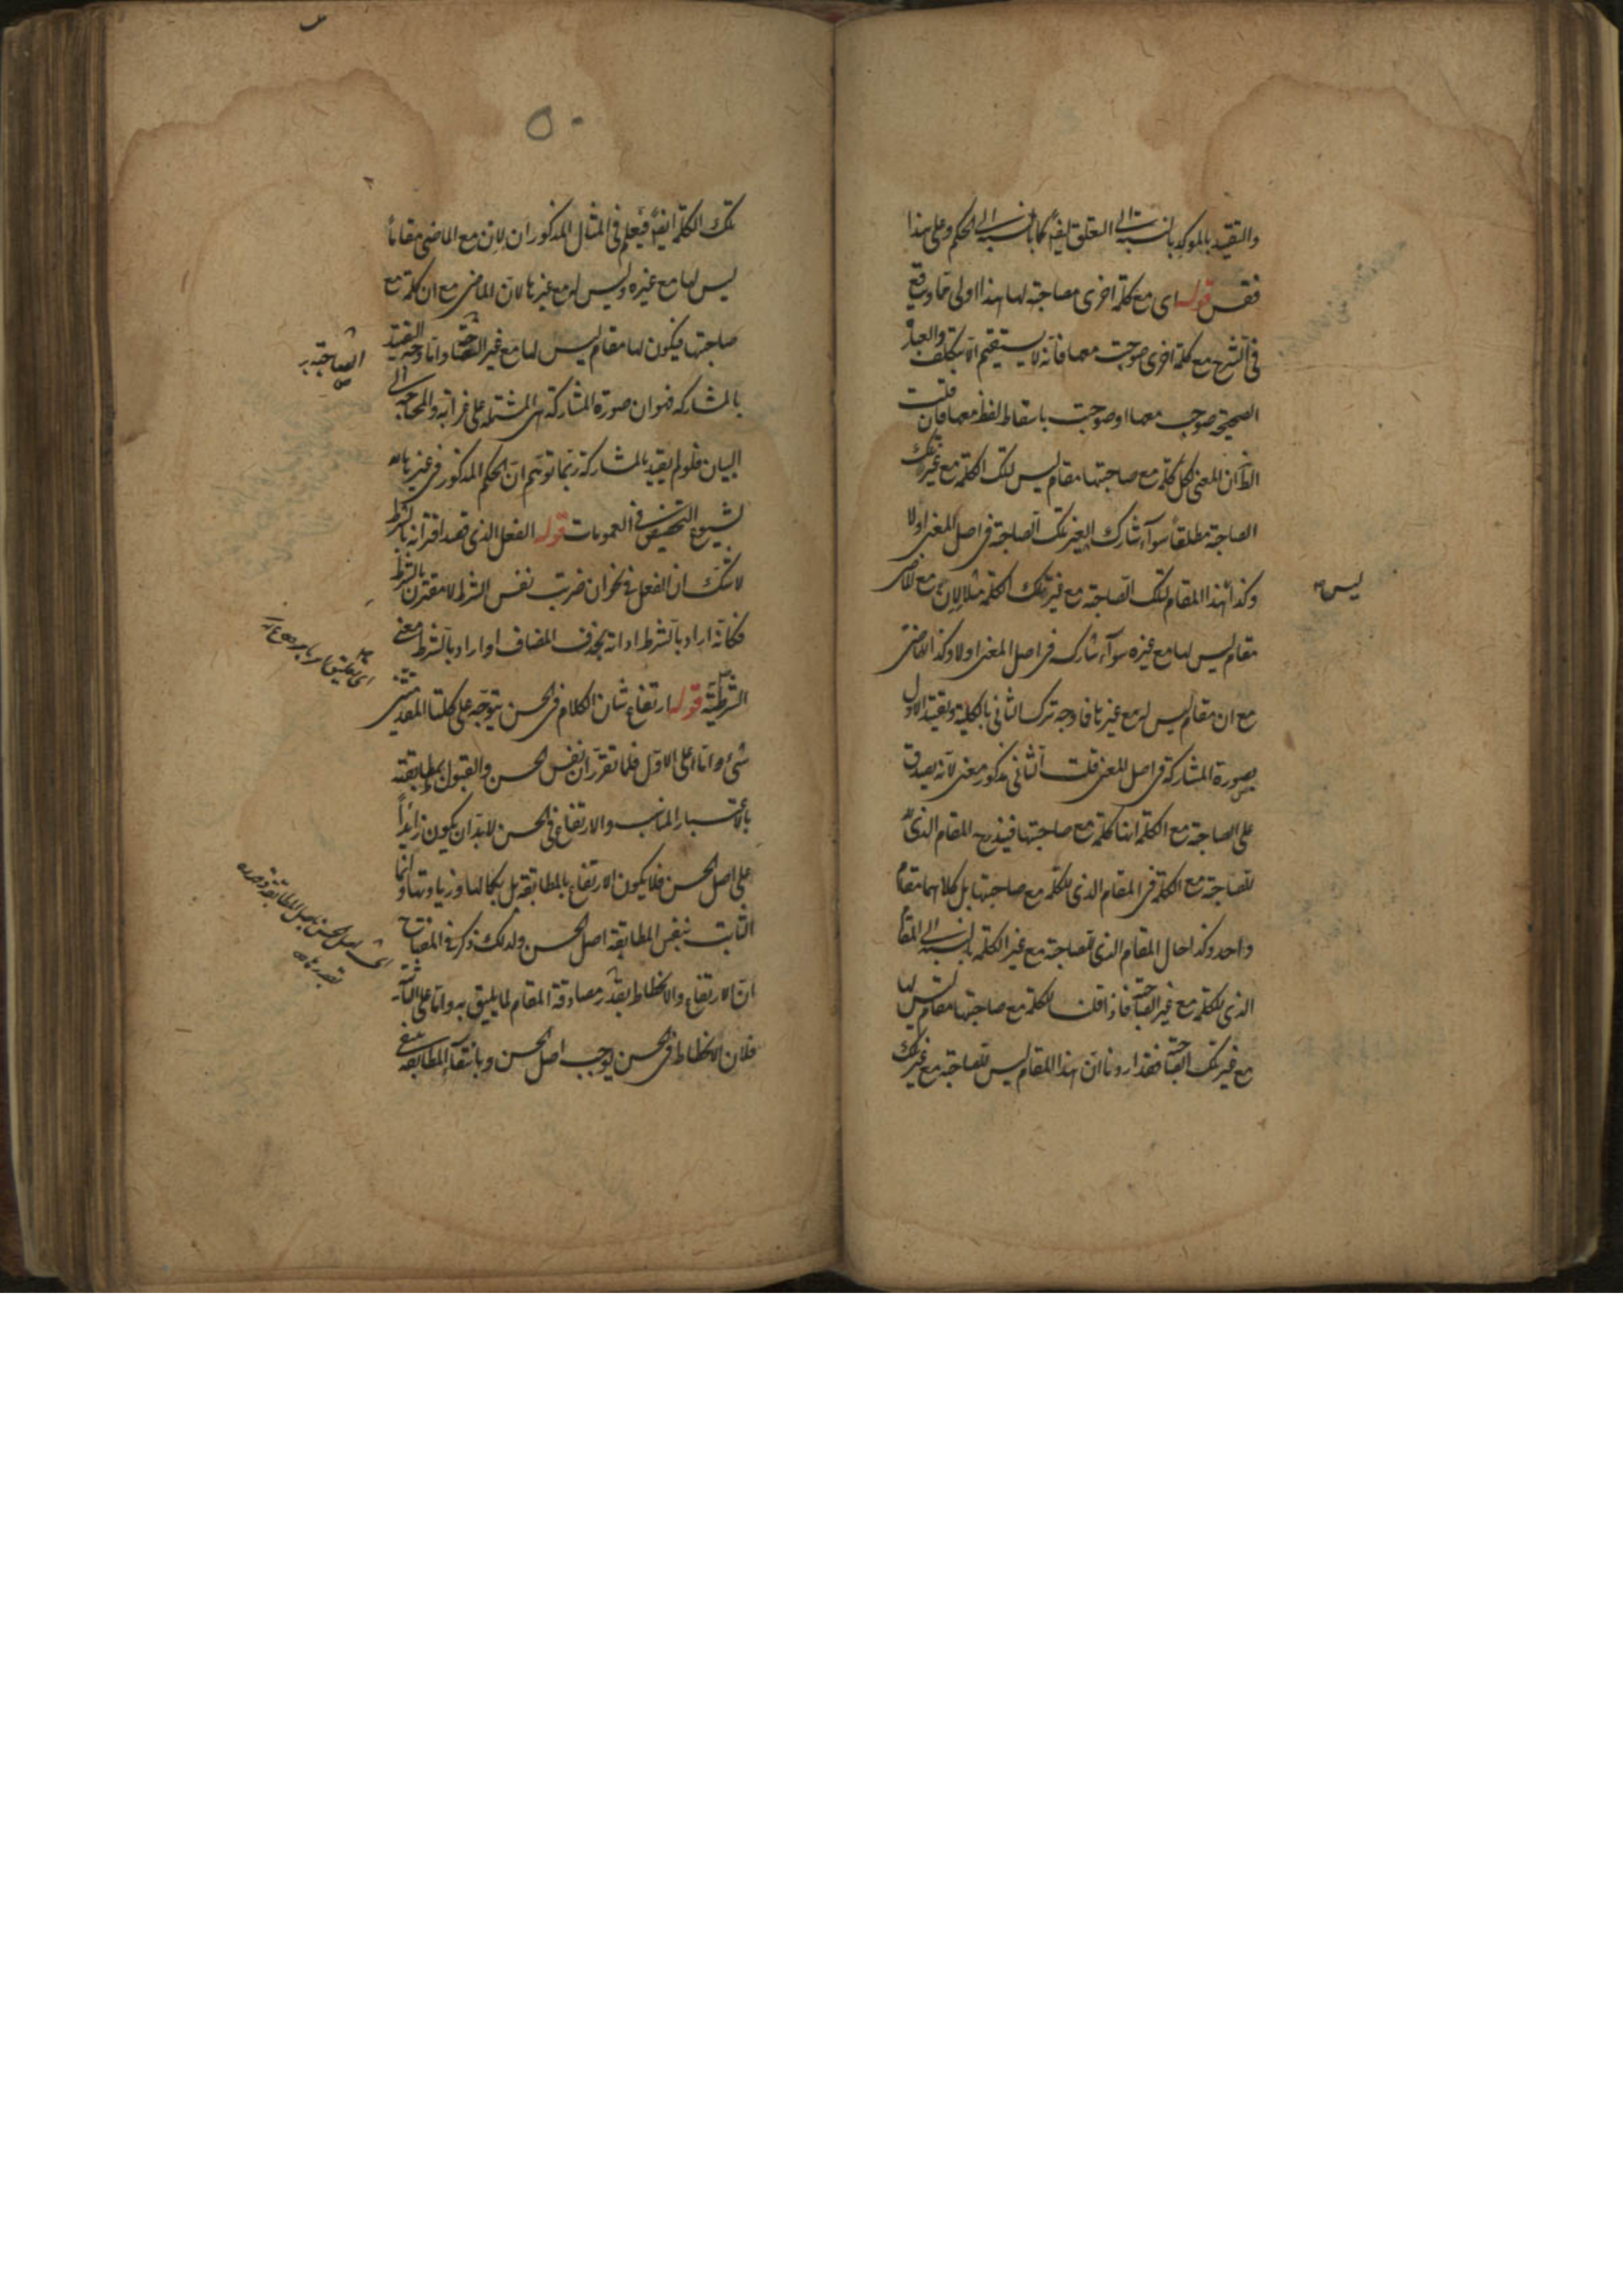 والتقييد بالموكد بالنسبة الى التعلق ايضا كما بالنسبة الى الحكم وعلى هذا
فقس قوله اى مع كلمة اخرى مصاحبة لها هذا اولى مما وقع
فى الشرح مع كلمة اخرى صوحبت معها فانه لا يستقيم الا بتكلف والعبارة
الصحيحة صوحب معها او صوحبت باسقاط لفظ معها فان قلت
الظ ان المعنى لكل كلمة مع صاحبتها مقام ليس لتلك الكلمة مع غير تلك
الصاحبة مطلقا سوآء شارك الغير تلك الصاحبة فى اصل المعنى اولا
وكذا هذا المقام لتلك الصاحبة مع غير تلك الكلمة مثلا لاِن مع الماضى
ليس
مقام ليس لها مع غيره سوآء شاركه فى اصل المعنى اولا وكذا للماضى
مع ان مقام ليس له مع غيرها فما وجه ترك الثانى بالكلية وتقييد الاول
بصورة المشاركة فى اصل المعنى قلت الثانى مذكور معنى لانه يصدق
على الصاحبة مع الكلمة انها كلمة مع صاحبتها فيندرج المقام الذى
للصاحبة مع الكلمة فى المقام الذى للكلمة مع صاحبتها بل كلاهما مقام
واحد وكذا حال المقام الذى للصاحبة مع غير الكلمة بالنسبة الى المقام
الذى للكلمة مع غير الصاحبة فاذا قلنا للكلمة مع صاحبتها مقام ليس لها
مع غير تلك الصاحبة فقد اردنا ان هذا المقام ليس للصاحبة مع غير تلك
تلك الكلمة ايضا فيعلم فى المثال المذكور ان لاِن مع الماضى مقاما
ليس لها مع غيره وليس له مع غيرها لان الماضى مع ان كلمة مع
صاحبتها فيكون لها مقام ليس لها مع غير الصاحبة واما وجه التقييد
بالمشاركة فهو ان صورة المشاركة هى المشتملة على غرابة والمحتاجة الى
البيان فلو لم يقيد بالمشاركة ربما توهم ان الحكم المذكور فى غيرها
لشيوع التخصيص فى العمومات قوله الفعل الذى قصد اقترانه بالشرط
لا شك ان الفعل فى نحو ان ضربت نفس الشرط لا مقترن بالشرط
فكانه اراد بالشرط اداته بحذف المضاف او اراد بالشرط معنى
الشرطية قوله ارتفاع شان الكلام فى الحسن يتوجه على كلتا المقدمتين
شئ واما على الاول فلما تقرر ان نفس الحسن والقبول بمطابقته
بالاعتبار المناسب والارتفاع فى الحسن لابد ان يكون زايدا
على اصل الحسن فلا يكون الارتفاع بالمطابقة بل بكمالها وزيادتها وانما
الثابت بنفس المطابقة اصل الحسن ولذلك ذكر فى المفتاح
ان الارتفاع والانحطاط بقدر مصادقة المقام لما يليق به واما على الثانية
فلان الانحطاط فى الحسن يوجب اصل الحسن وبانتفآء المطابقة ينتفى